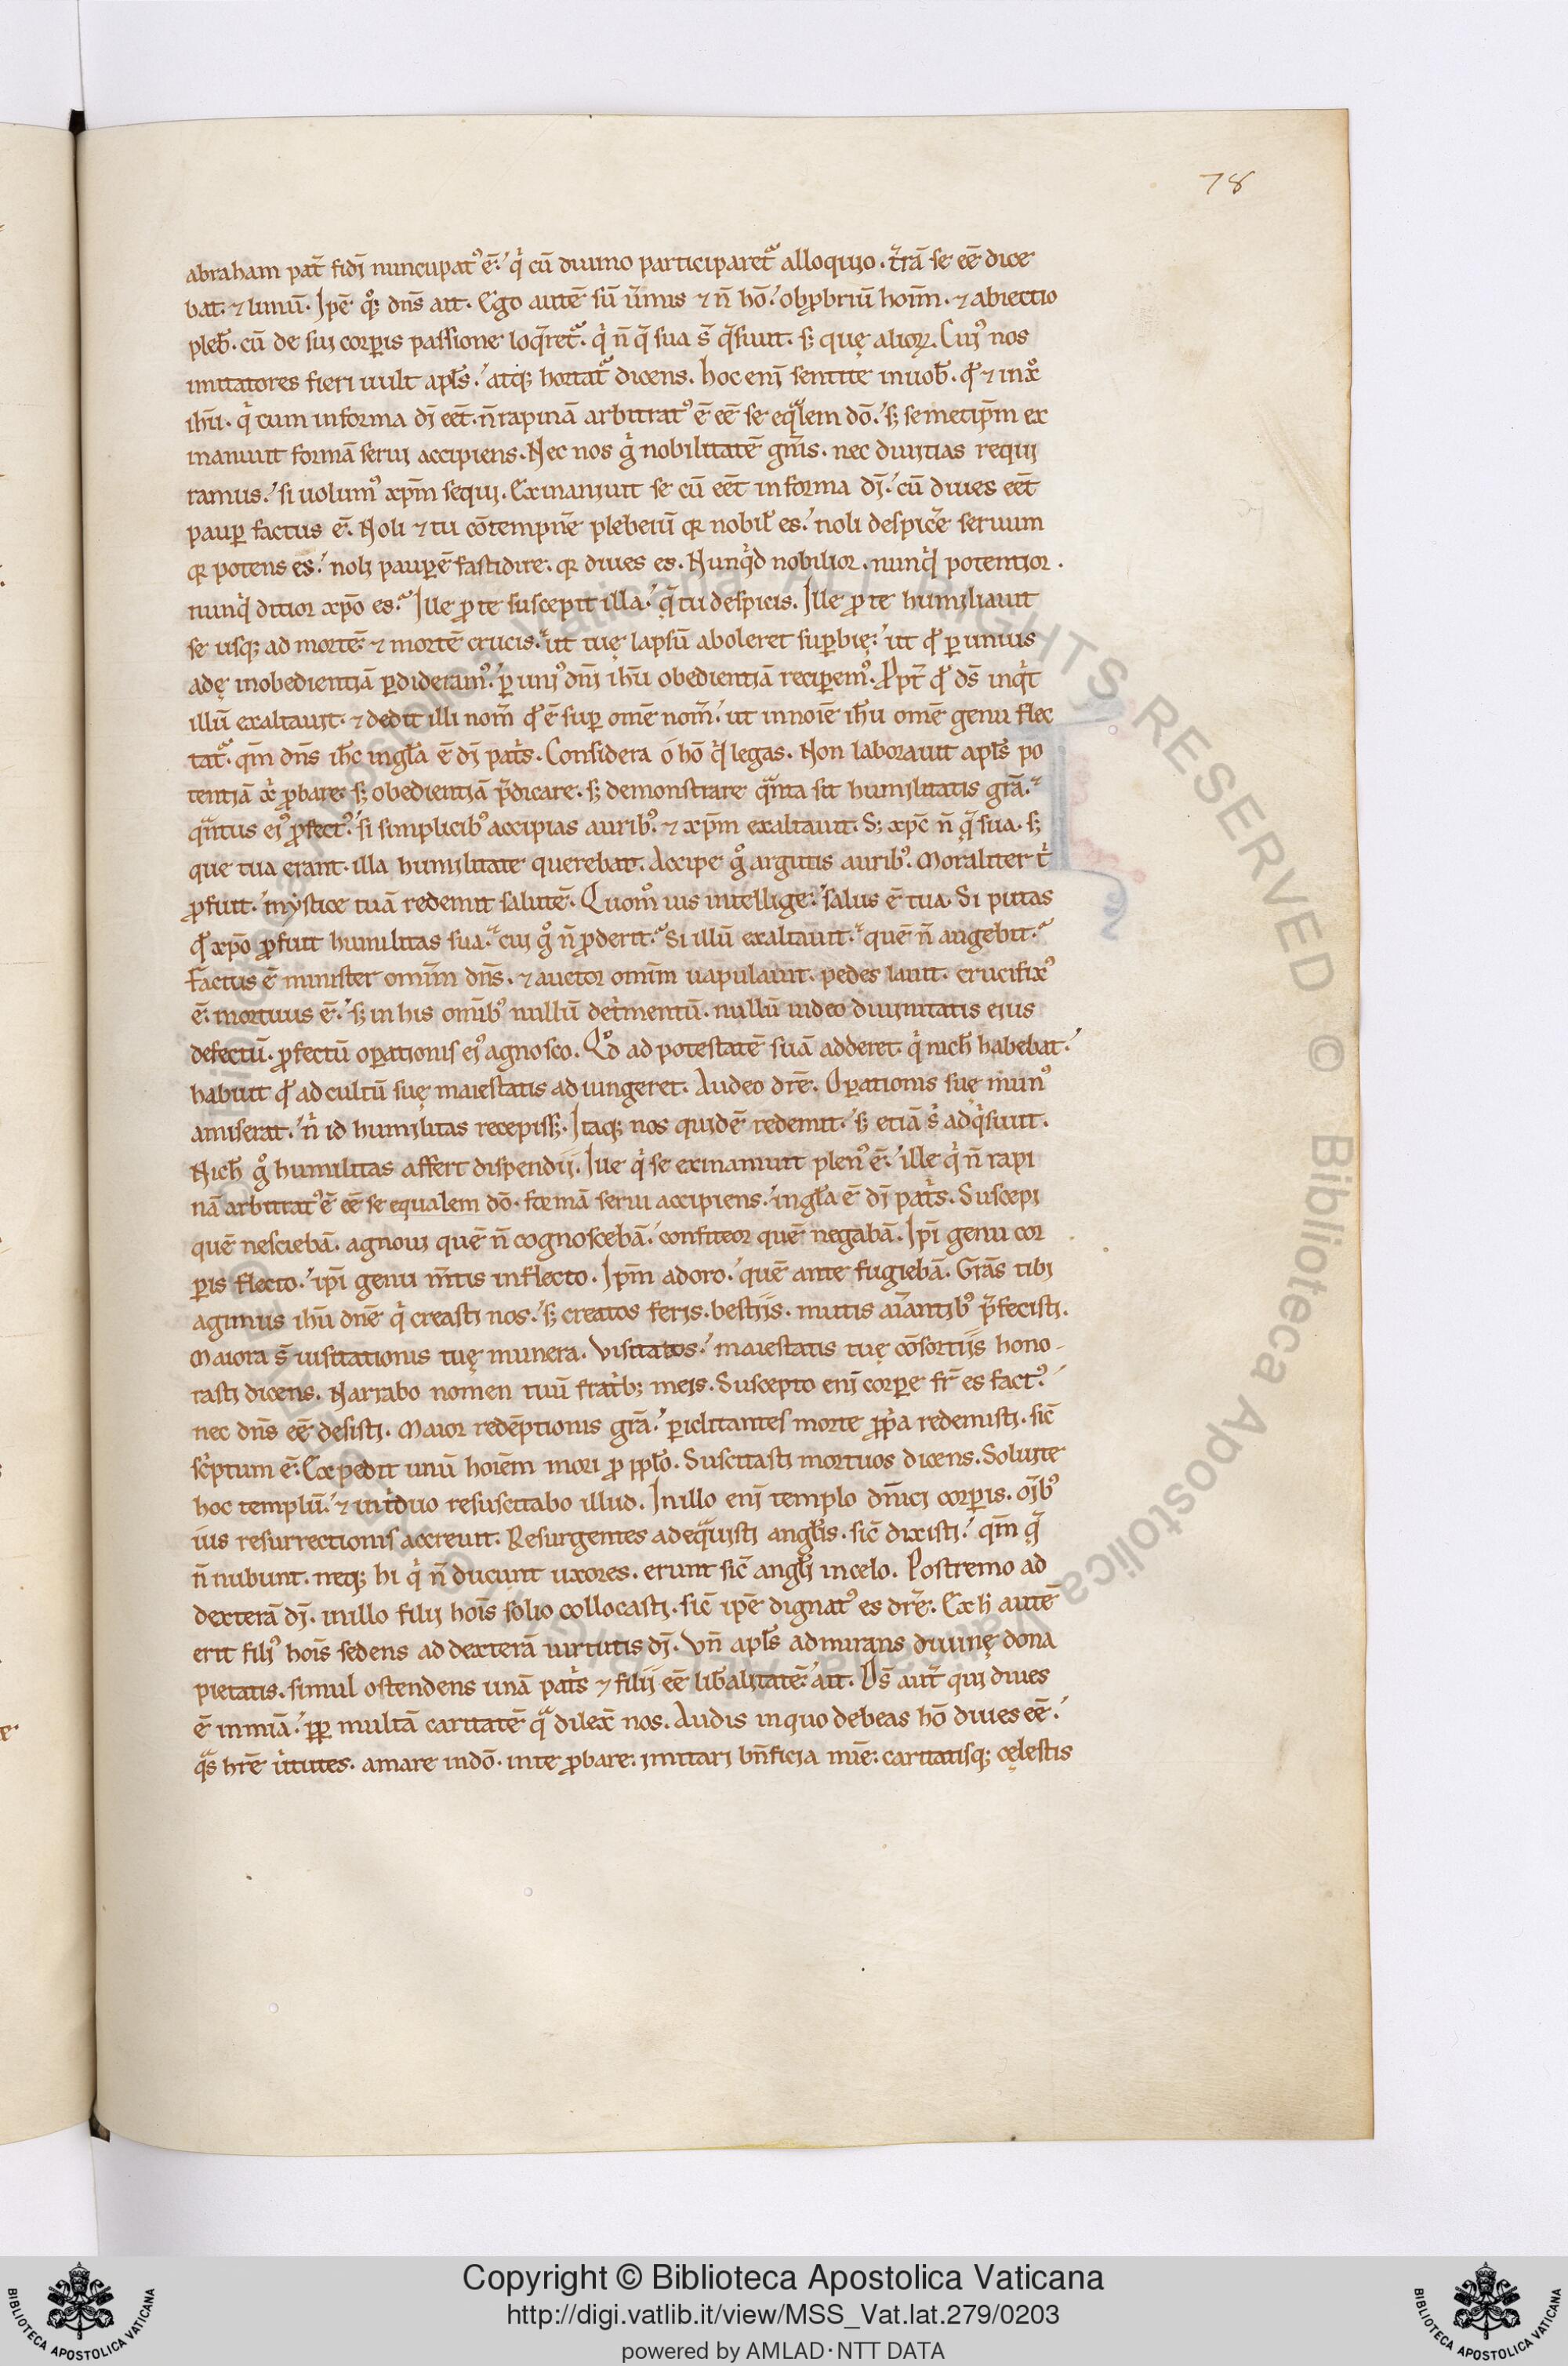 78
abraham pat̃ fidj nuncupatꝰ ē. q̇ cū diuino participaret᷑ alloquio. t̃rā se eē dice
bat. ⁊ limū. Ipē qͦꝫ dn̄s ait. Ego autē sū u̇mis ⁊ n̄ hō. obꝓbriū hoīm. ⁊ abiectio
pleb̄. cū de sui corꝑis passione loq̃ret᷑. q̇ n̄ q̃ sua s̄ q̃siuit. sꝫ quę alioꝝ. Cuiꝰ nos
imitatores fieri uult apl̄s. atqꝫ hortat᷑ dicens. hoc enī sentite in uob̄. qd̄ ⁊ in xͦ
ih̄u. q̇ cum in forma dj eēt. n̄ rapinā arbitratꝰ ē eē se eqᷓlem dō. sꝫ semetip̄m ex
inaniuit formā serui accipiens. Nec nos g̊ nobilitatē gn̄is. nec diuitias requi
ramus. si uolumꝰ xp̄m sequi. Exinaniuit se cū eēt in forma dj. cū diues eēt
pauꝑ factus ē. Noli ⁊ tu cōtempn̄e plebeiū qꝛ nobil̄ es. noli despic̄e seruum
qꝛ potens es. noli pauꝑē fastidire. qꝛ diues es. Nunq̇d nobilior. nunq̇d potentior.
nunq̇d ditior xp̄o es. Ille ꝓ te suscepit illa. q̃ tu despicis. Ille ꝓ te humiliauit
se usqꝫ ad mortē. ⁊ mortē crucis. ut tuę lapsū aboleret suꝑbię. ut qd̄ ꝑ unius
adę inobedientiā ꝑdideramꝰ. ꝑ uniꝰ dn̄i ih̄u obedientiā reciꝑemꝰ. Ppt̄ qd̄ ds̄ inq̇t
illū exaltauit. ⁊ dedit illi nom̄ qd̄ ē suꝑ omē nom̄. ut in noīe ih̄u omē genu flec
tat᷑. qm̄ dn̄s ih̄c in gl̄a ē dj pat̄s. Considera o hō q̇d legas. Non laborauit apl̄s po
tentiā xͥ ꝓbare. sꝫ obedientiā p̄dicare. sꝫ demonstrare qᷓnta sit humilitatis gr̄a.
qᷓntus eiꝰ ꝓfectꝰ. si simplicibꝰ accipias auribꝰ. ⁊ xp̄m exaltauit. Sꝫ xp̄c n̄ q̃ sua. sꝫ
que tua erant. illa humilitate querebat. Accipe g̊ argutis auribꝰ. Moraliter t̊
ꝓfuit. mystice tuā redemit salutē. Quom̊ uis intellige. salus ē tua. Si putas
qd̄ xp̄o ꝓfuit humilitas sua. cui g̊ n̄ ꝓderit. Si illū exaltauit. quē n̄ augebit.
Factus ē minister omīm dn̄s. ⁊ auctor omīm uapulauit. pedes lauit. crucifixꝰ
ē. mortuus ē. sꝫ in his omībꝰ nullū det̊mentū. nullū uideo diuinitatis eius
defectū. ꝓfectū oꝑationis eiꝰ agnosco. Qͦd ad potestatē suā adderet q̇ nich̄ habebat.
habuit qd̄ ad cultū suę maiestatis adiungeret. Audeo dr̄e. Oꝑationis suę munꝰ
amiserat. n̊ id humilitas recepissꝫ. Itaqꝫ nos quidē redemit. sꝫ etiā s̊ adq̇siuit.
Nich̄ g̊ humilitas affert dispendii. Ille q̇ se exinaniuit plenꝰ ē. ille q̇ n̄ rapi
nā arbitratꝰ ē eē se equalem dō. formā serui accipiens. in gl̄a ē dj pat̄s. Suscepi
quē nesciebā. agnoui quē n̄ cognoscebā. confiteor quē negabā. Ip̄i genu cor
ꝑis flecto. ip̄i genu m̄tis inflecto. Ip̄m adoro. quē ante fugiebā. Gr̄as tibi
agimus ih̄u dn̄e q̇ creasti nos. sꝫ creatos feris. bestiis. mutis aīantibꝰ p̄fecisti.
Maiora s̄ uisitationis tuę munera. Visitatos. maiestatis tuę cōsortiis hono-
rasti dicens. Narrabo nomen tuū frat̊bꝫ meis. Suscepto enī corꝑe fr̄ es factꝰ.
nec dn̄s eē desisti. Maior redēptionis gr̄a. ꝑiclitantes morte ꝓp̊a redemisti. sic̄
sc̊ptum ē. Expedit unū hoīem mori ꝓ ppl̄o. Suscitasti mortuos dicens. Soluite
hoc templū. ⁊ in t̊duo resuscitabo illud. In illo enī templo dn̄ici corꝑis. oībꝰ
ius resurrectionis accreuit. Resurgentes adeqᷓuisti angl̄is. sic̄ dixisti. qm̄ q̃
n̄ nubunt. neqꝫ hi q̇ n̄ ducunt uxores. erunt sic̄ angl̄i in celo. Postremo ad
dexterā dj. in illo filii hoīs solio collocasti. sic̄ ipē dignatꝰ es dr̄e. Ex h̄ autē
erit filiꝰ hoīs sedens ad dexterā uirtutis dj. Vn̄ apl̄s admirans diuinę dona
pietatis. simul ostendens unā pat̄s ⁊ filii eē lib̄alitatē. ait. Ds̄ aut̄ qui diues
ē in mīa. ꝓꝑ multā caritatē qᷓ dilex̄ nos. Audis in quo debeas hō diues eē.
qᷓs hr̄e u̇tutes. amare in dō. in te ꝓbare. imitari bn̄ficia mīe. caritatisqꝫ cęlestis
Copyright © Biblioteca Apostolica Vaticana
http://digi.vatlib.it/view/MSS_Vat.lat.279/0203
powered by AMLAD·NTT DATA